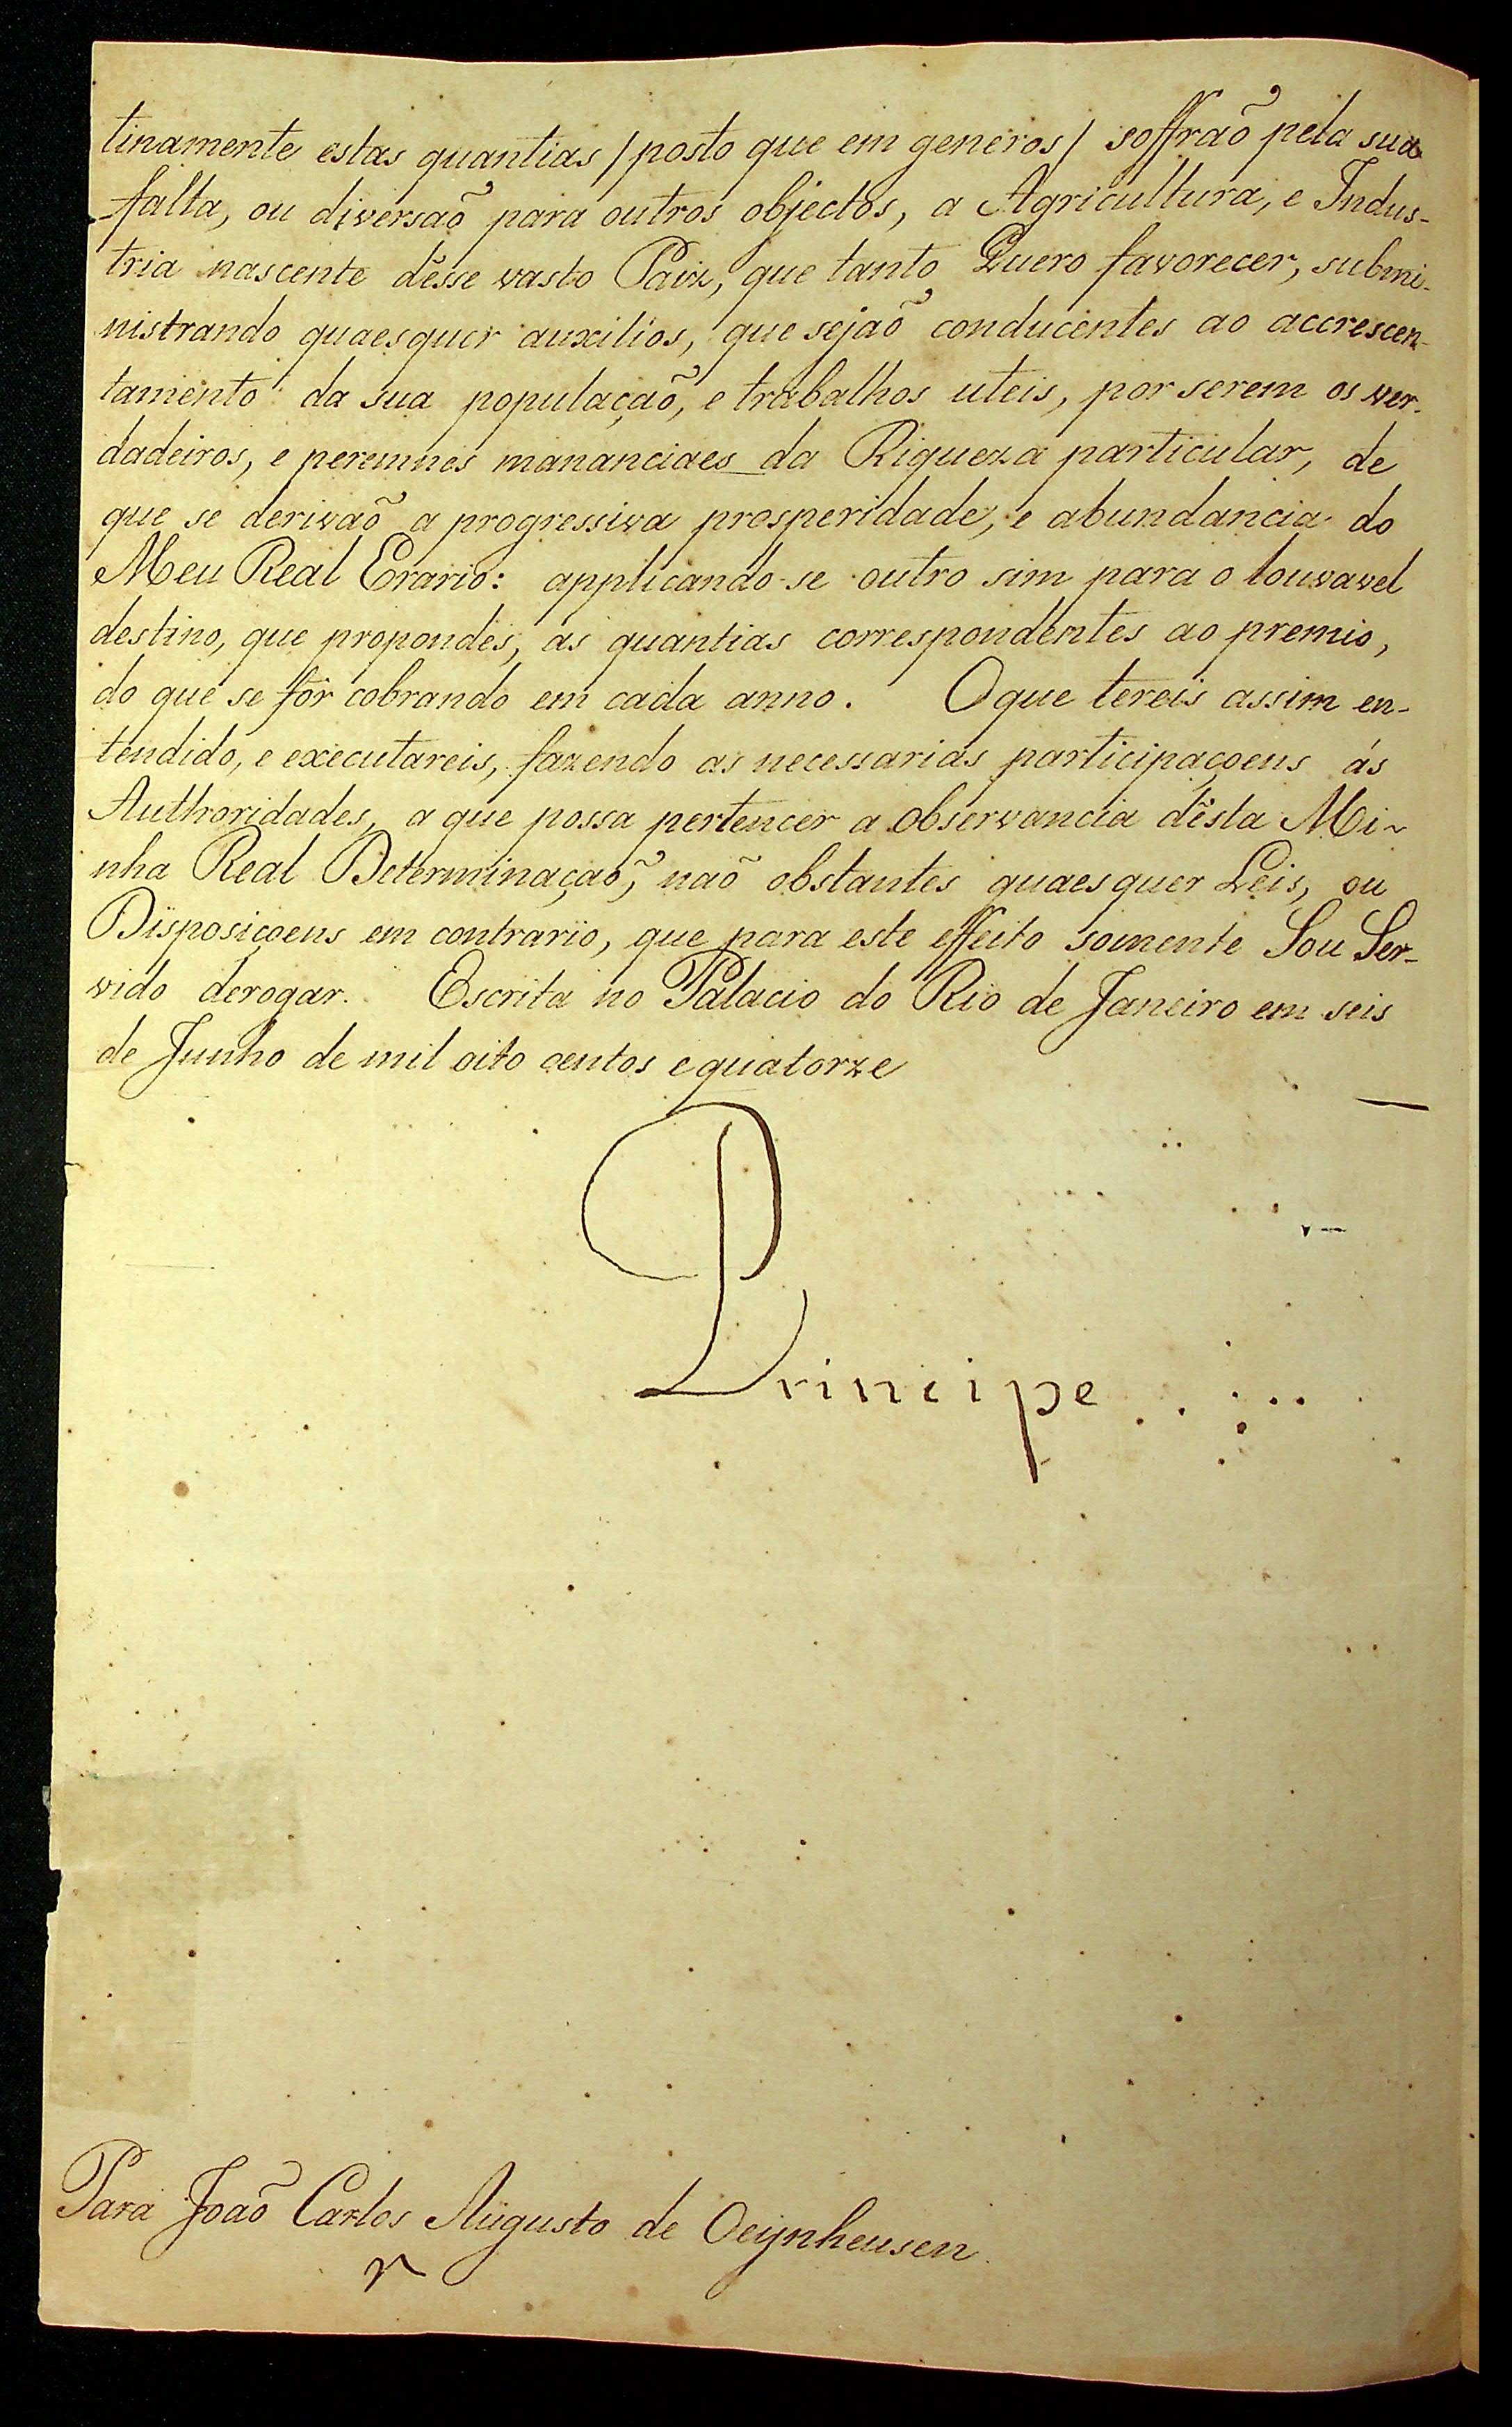 tinamente estas quantias / posto que em generos / soffraõ pela sua
falta, ou diversaõ para outros objectos, a Agricultura, e Indus-
tria nascente dêsse vasto Paiz, que tanto Quero favorecer, submi-
nistrando quaesquer auxilios, que sejaõ conducentes ao accrescen-
tamento da sua populaçaõ, e trabalhos uteis, por serem os ver-
dadeiros, e peremnes mananciaes da Riqueza particular, de
que se derivaõ a progressiva prosperidade, e abundancia do
Meu Real Erario: applicando-se outro sim para o louvavel
destino, que propondes, as quantias correspondentes ao premio,
do que se fôr cobrando em cada anno. O que tereis assim en-
tendido, e executareis, fazendo as necessarias participaçoens ás
Authoridades, a que possa pertencer a observancia désta Mi-
nha Real Determinaçaõ, naõ obstantes quaesquer Leis, ou
Disposiçoens em contrario, que para este effeito somente Sou Ser-
vido derogar. Escrita no Palacio do Rio de Janeiro em seis
de Junho de mil oito centos e quatorze
Principe
Para Joaõ Carlos Augusto de Oeynheusen